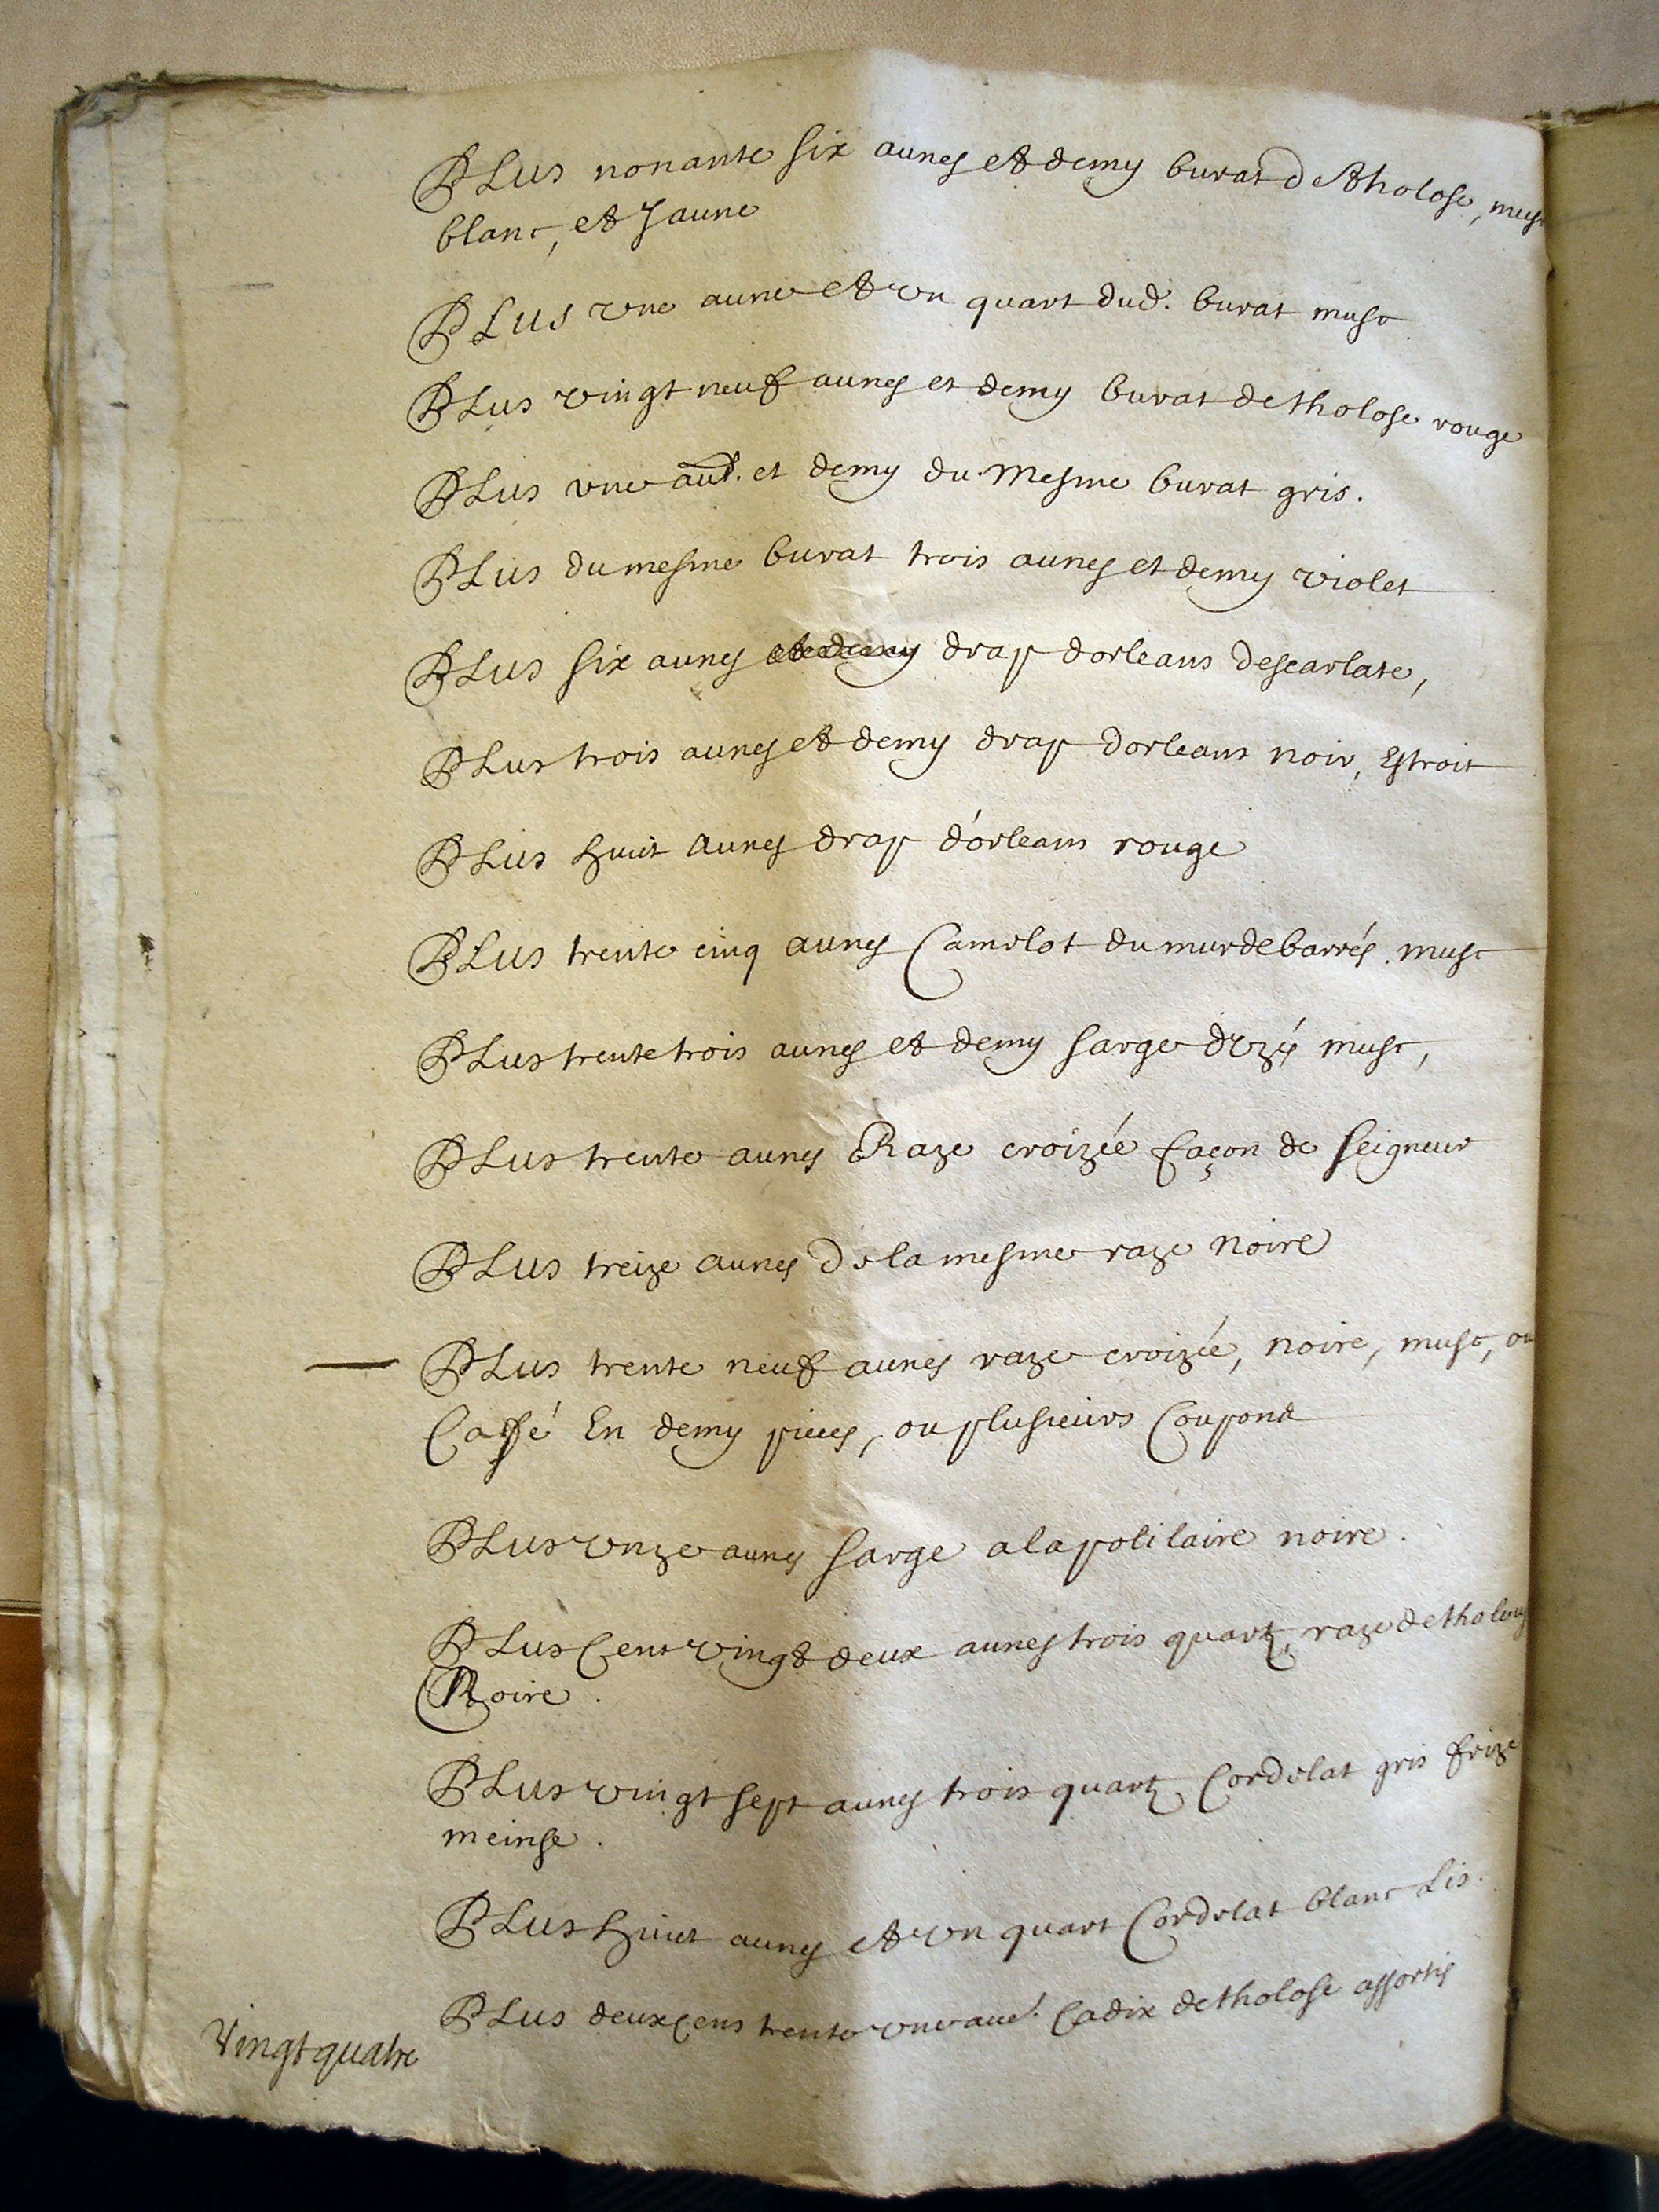 PLus nonante six aunes et demy burat de tholose, musc
blanc, et Jaune
PLus vne aune et vn quart dud. burat musc
PLus vingt neuf aunes et demy burat de tholose rouge
PLus vne aul. et demy du mesme burat gris.
PLus du mesme burat trois aunes et demy violet
PLus six aunes et demy drap dorleans descarlate,
PLus trois aunes et demy drap dorleans noir, Estroit
PLus huit aunes drap d'orleans rouge
PLus trente cinq aunes Camelot du mur de barrés. musc
PLus trente trois aunes et demy sarge dvzés musc,
PLus trente aunes Raze croizée façon de seigneur
PLus treize aunes de la mesme raze noire
PLus trente neuf aunes raze croizée, noire, musc, ou
Caffé En demy pieces, ou plusieurs Coupons
PLus vnze aunes sarge a la polilaire noire.
PLus Cent vingt deux aunes trois quartz, raze de tholouze
Noire.
PLus vingt sept aunes trois quartz Cordelat gris frize
meinse.
PLus huict aunes et vn quart Cordelat blanc Lis.
PLus deux cens trente vne aué. Cadix de tholose assortis
Vingt quatre